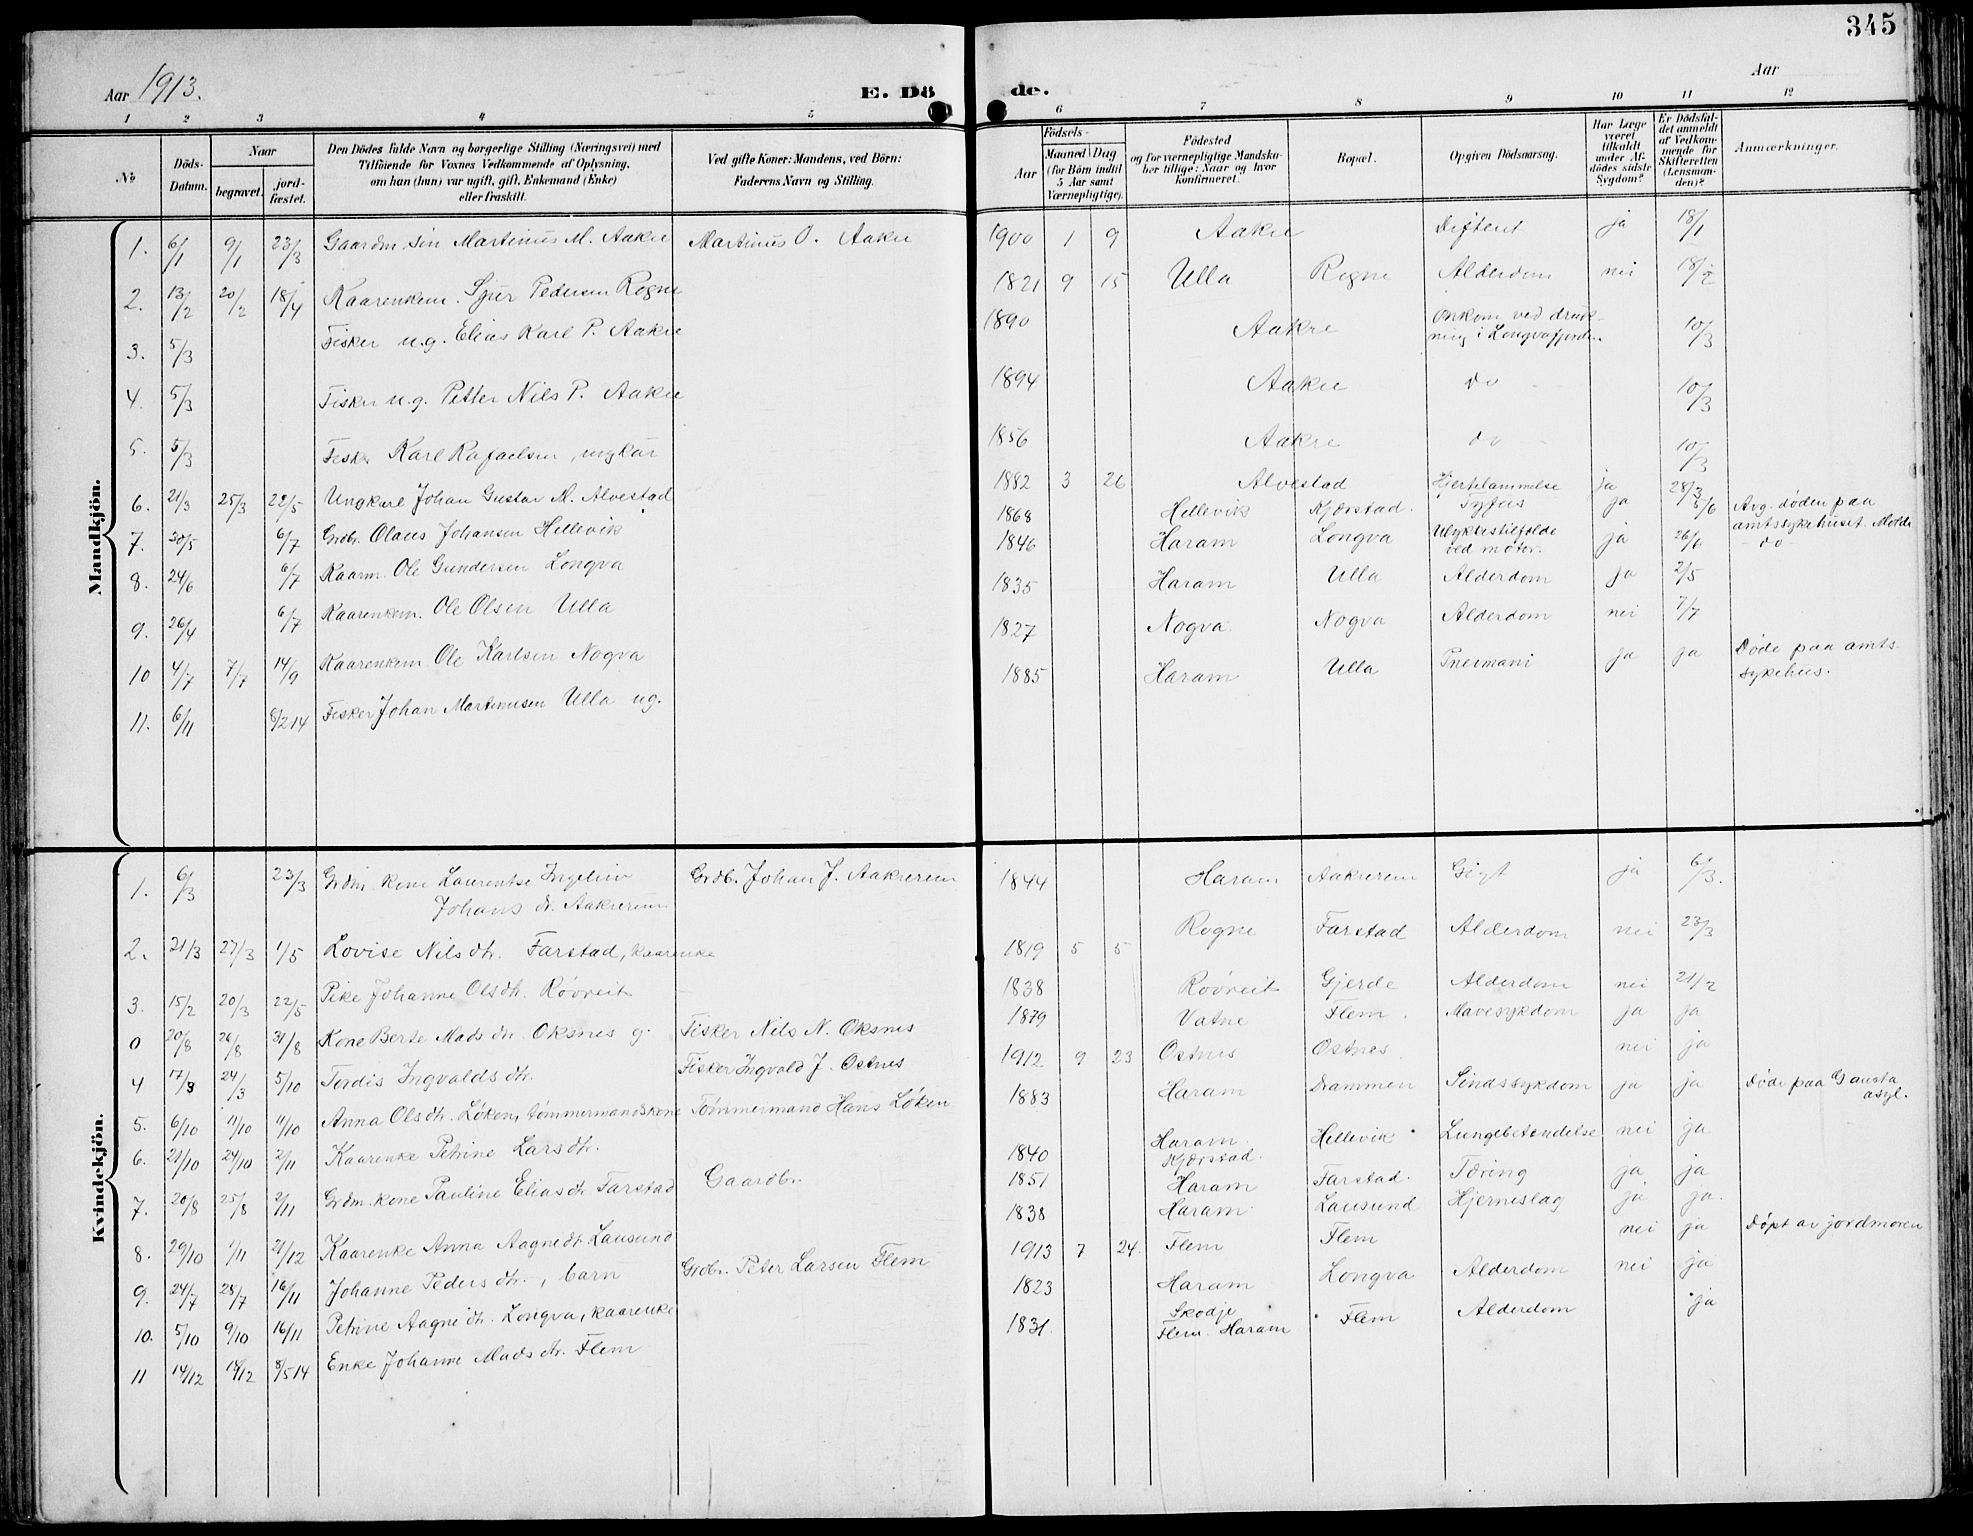 345
Aar 1913.
E. Dö de.
Aar
1 2 3 4 5 6 7 8 9 10 11 12
No
Döds-Datum.
Naar
begravet.
jordfæstet.
Den Dödes fulde Navn og borgerlige Stilling (Næringsvei) med
Tilföiende for Voxnes Vedkommende af Oplysning,
om han (hun) var ugift, gift, Enkemand (Enke)
eller fraskilt.
Ved gifte Koner: Mandens, ved Börn:
Faderens Navn og Stilling.
Födsels-
Aar
Maaned Dag
(for Börn indtil
5 Aar samt
Værnepligtige).
Födested
og for værnepligtige Mandskaber tillige: Naar og hvor
konfirmeret.
Bopæl.
Opgiven Dödsaarsag.
Har Læge
været
tilkaldt
under Afdödes sidste
Sygdom?
Er Dödsfaldet anmeldt
af Vedkommende for
Skifteretten
(Lensmanden)?
Anmærkninger.
Mandkjön.
1. 6/1 9/1 23/3 Gaardm. sön Martinus M. Aakre Martinus O. Aakre 1900 1 9 Aakre Difterit ja 18/1
2. 13/2 20/2 18/4 Kaarenkem. Sjur Pedersen Rogne 1821 9 15 Ulla Rogne Alderdom nei 18/2
3. 5/3 Fisker u.g. Elias Karl P. Aakre 1890 Aakre Omkom ved drukning i Longvafjorden. 10/3
4. 5/3 Fisker u.g. Petter Nils P. Aakre 1894 Aakre do 10/3
5. 5/3 Fisk. Karl Rafaelsen, ungkar 1856 Aakre do 10/3
6. 21/3 25/3 22/5 Ungkarl Johan Gustav M. Alvestad 1882 3 26 Alvestad Hjertelammelse ja 28/3
7. 30/5 6/7 Grdbr. Olaus Johansen Hellevik 1868 Hellevik Kjørstad. Tyfus ja 5/6 Avg. døden paa amtssykehuset. Molde
8. 24/6 6/7 Kaarm. Ole Gundersen Longva 1846 Haram Longva Ulykkestilfælde ved motor. ja 26/6 - do -
9. 26/4 6/7 Kaarenkem. Ole Olsen Ulla 1835 Haram Ulla Alderdom ja 2/5
10 4/7 7/7 14/9 Kaarenkem. Ole Karlsen Nogva 1827 Nogva Nogva Alderdom nei 7/7
11. 6/11 8/2 14 Fisker Johan Martinusen Ulla ug. 1885 Haram Ulla Pnevmani ja ja Døde paa amtssykehus.
Kvindekjön.
1. 6/3 23/3 Grdm. kone Laurentse Ingeline Johans dt. Aakrerem Grdb. Johan J. Aakrerem 1844 Haram Aakrerem Gigt ja 6/3.
2. 21/3 27/3 1/5 Lovise Nils dtr. Farstad, kaarenke 1819 5 5 Rogne Farstad Alderdom nei 23/3
3. 15/2 20/3 22/5 Pike Johanne Olsdtr. Røvreit 1838 Røvreit Gjerde Alderdom nei 21/2
0 20/8 26/8 31/8 Kone Berte Mads dtr. Oksnes g. Fisker Nils N. Oksnes 1879 Vatne Flem. Mavesykdom ja ja
4 17/3 24/3 5/10 Tordis Ingvalds dtr. Fisker Ingvald J. Ostnes 1912 9 23 Ostnes Ostnes. nei ja
5. 6/10 11/10 11/10 Anna Olsdtr. Løken, tømmermandskone Tømmermand Hans Løken 1883 Haram Drammen Sindssykdom ja ja Døde paa Gausta asyl.
6. 21/10 24/10 2/11 Kaarenke Petrine Larsdtr. 1840 Haram. Kjørstad. Hellevik Lungebetændelse nei ja
7. 20/8 25/8 2/11 Grdm. kone Pauline Elias dt. Farstad Gaardbr. 1851 Haram Farstad. Tæring ja ja
8. 29/10 1/11 21/12 Kaarenke Anna Aagnedt. Lausund 1838 Haram Lausund Hjerneslag ja ja.
9. 24/7 28/7 16/11 Johanne Peders dtr., barn Grdbr. Peter Larsen Flem 1913 7 24. Flem Flem nei ja Døpt av jordmoren
10. 5/10 9/10 16/11 Petrine Aagne dtr. Longva, kaarenke 1823 Haram Longva Alderdom nei ja
11 14/12 18/12 8/5 14 Enke Johanne Mads dtr. Flem 1831. Skodje Flem. Haram Flem Alderdom ja